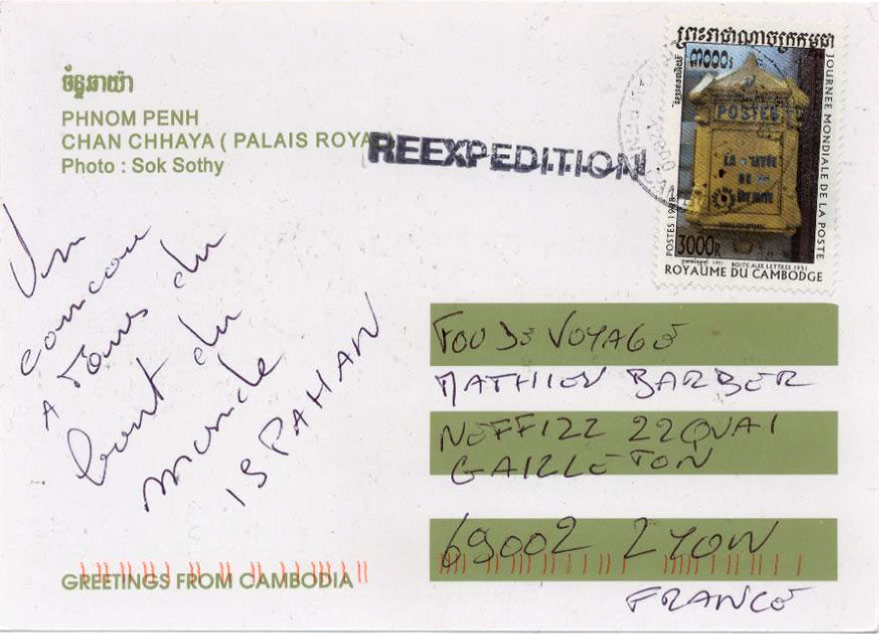 ច័ន្ទឆាយ៉ា
PHNOM PENH
CHAN CHHAYA ( PALAIS ROYA
Photo : Sok Sothy
REEXPEDITION
ព្រះរាជាណាចក្រកម្ពុជា
៣០០០៛
JOURNEE MONDIALE DE LA POSTE
POSTES
LA LEVÉE
DE
POSTES 1998
3000R
BOITE AUX LETTRES 1951
ROYAUME DU CAMBODGE
Un
coucou
A Tous du
bout du
monde
ISPAHAN
FOU DE VOYAGE
MATHIEU BARBER
NEFFIZZ 22 QUAI
GAILLETON
69002 LYON
FRANCE
GREETINGS FROM CAMBODIA